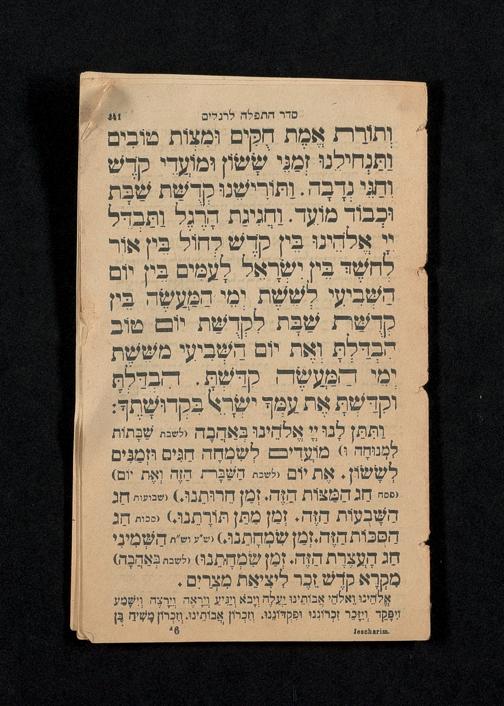 סדר התפלה לרגלים 341
וְתוֹרַת אֱמֶת חֻקִּים וּמִצְוֹת טוֹבִים
וַתַּנְחִילֵנוּ זְמַנֵּי שָׂשׂוֹן וּמוֹעֲדֵי קֹדֶשׁ
וְחַגֵּי נְדָבָה. וַתּוֹרִישֵׁנוּ קְדֻשַּׁת שַׁבָּת
וּכְבוֹד מוֹעֵד. וַחֲגִיגַת הָרֶגֶל וַתַּבְדֵּל
יְיָ אֱלֹהֵינוּ בֵּין קֹדֶשׁ לְחוֹל בֵּין אוֹר
לְחֹשֶׁךְ בֵּין יִשְׂרָאֵל לָעַמִּים בֵּין יוֹם
הַשְּׁבִיעִי לְשֵׁשֶׁת יְמֵי הַמַּעֲשֶׂה בֵּין
קְדֻשַּׁת שַׁבָּת לִקְדֻשַּׁת יוֹם טוֹב
הִבְדַּלְתָּ וְאֶת יוֹם הַשְּׁבִיעִי מִשֵּׁשֶׁת
יְמֵי הַמַּעֲשֶׂה קִדַּשְׁתָּ. הִבְדַּלְתָּ
וְקִדַּשְׁתָּ אֶת עַמְּךָ יִשְׂרָאֵל בִּקְדֻשָּׁתֶךָ:
וַתִּתֶּן לָנוּ יְיָ אֱלֹהֵינוּ בְּאַהֲבָה (לשבת שַׁבָּתוֹת
לִמְנוּחָה וּ) מוֹעֲדִים לְשִׂמְחָה חַגִּים וּזְמַנִּים
לְשָׂשׂוֹן. אֶת יוֹם (לשבת הַשַּׁבָּת הַזֶּה וְאֶת יוֹם)
(פסח חַג הַמַּצּוֹת הַזֶּה. זְמַן חֵרוּתֵנוּ.) (שבועות חַג
הַשָּׁבֻעוֹת הַזֶּה. זְמַן מַתַּן תּוֹרָתֵנוּ.) (סכות חַג
הַסֻּכּוֹת הַזֶּה. זְמַן שִׂמְחָתֵנוּ.) (ש״ע וש״ת הַשְּׁמִינִי
חַג הָעֲצֶרֶת הַזֶּה. זְמַן שִׂמְחָתֵנוּ) (לשבת בְּאַהֲבָה)
מִקְרָא קֹדֶשׁ זֵכֶר לִיצִיאַת מִצְרָיִם.
אֱלֹהֵינוּ וֵאלֹהֵי אֲבוֹתֵינוּ יַעֲלֶה וְיָבֹא וְיַגִּיעַ וְיֵרָאֶה וְיֵרָצֶה וְיִשָּׁמַע
וְיִפָּקֵד וְיִזָּכֵר זִכְרוֹנֵנוּ וּפִקְדוֹנֵנוּ. וְזִכְרוֹן אֲבוֹתֵינוּ. וְזִכְרוֹן מָשִׁיחַ בֶּן
Jescharim.